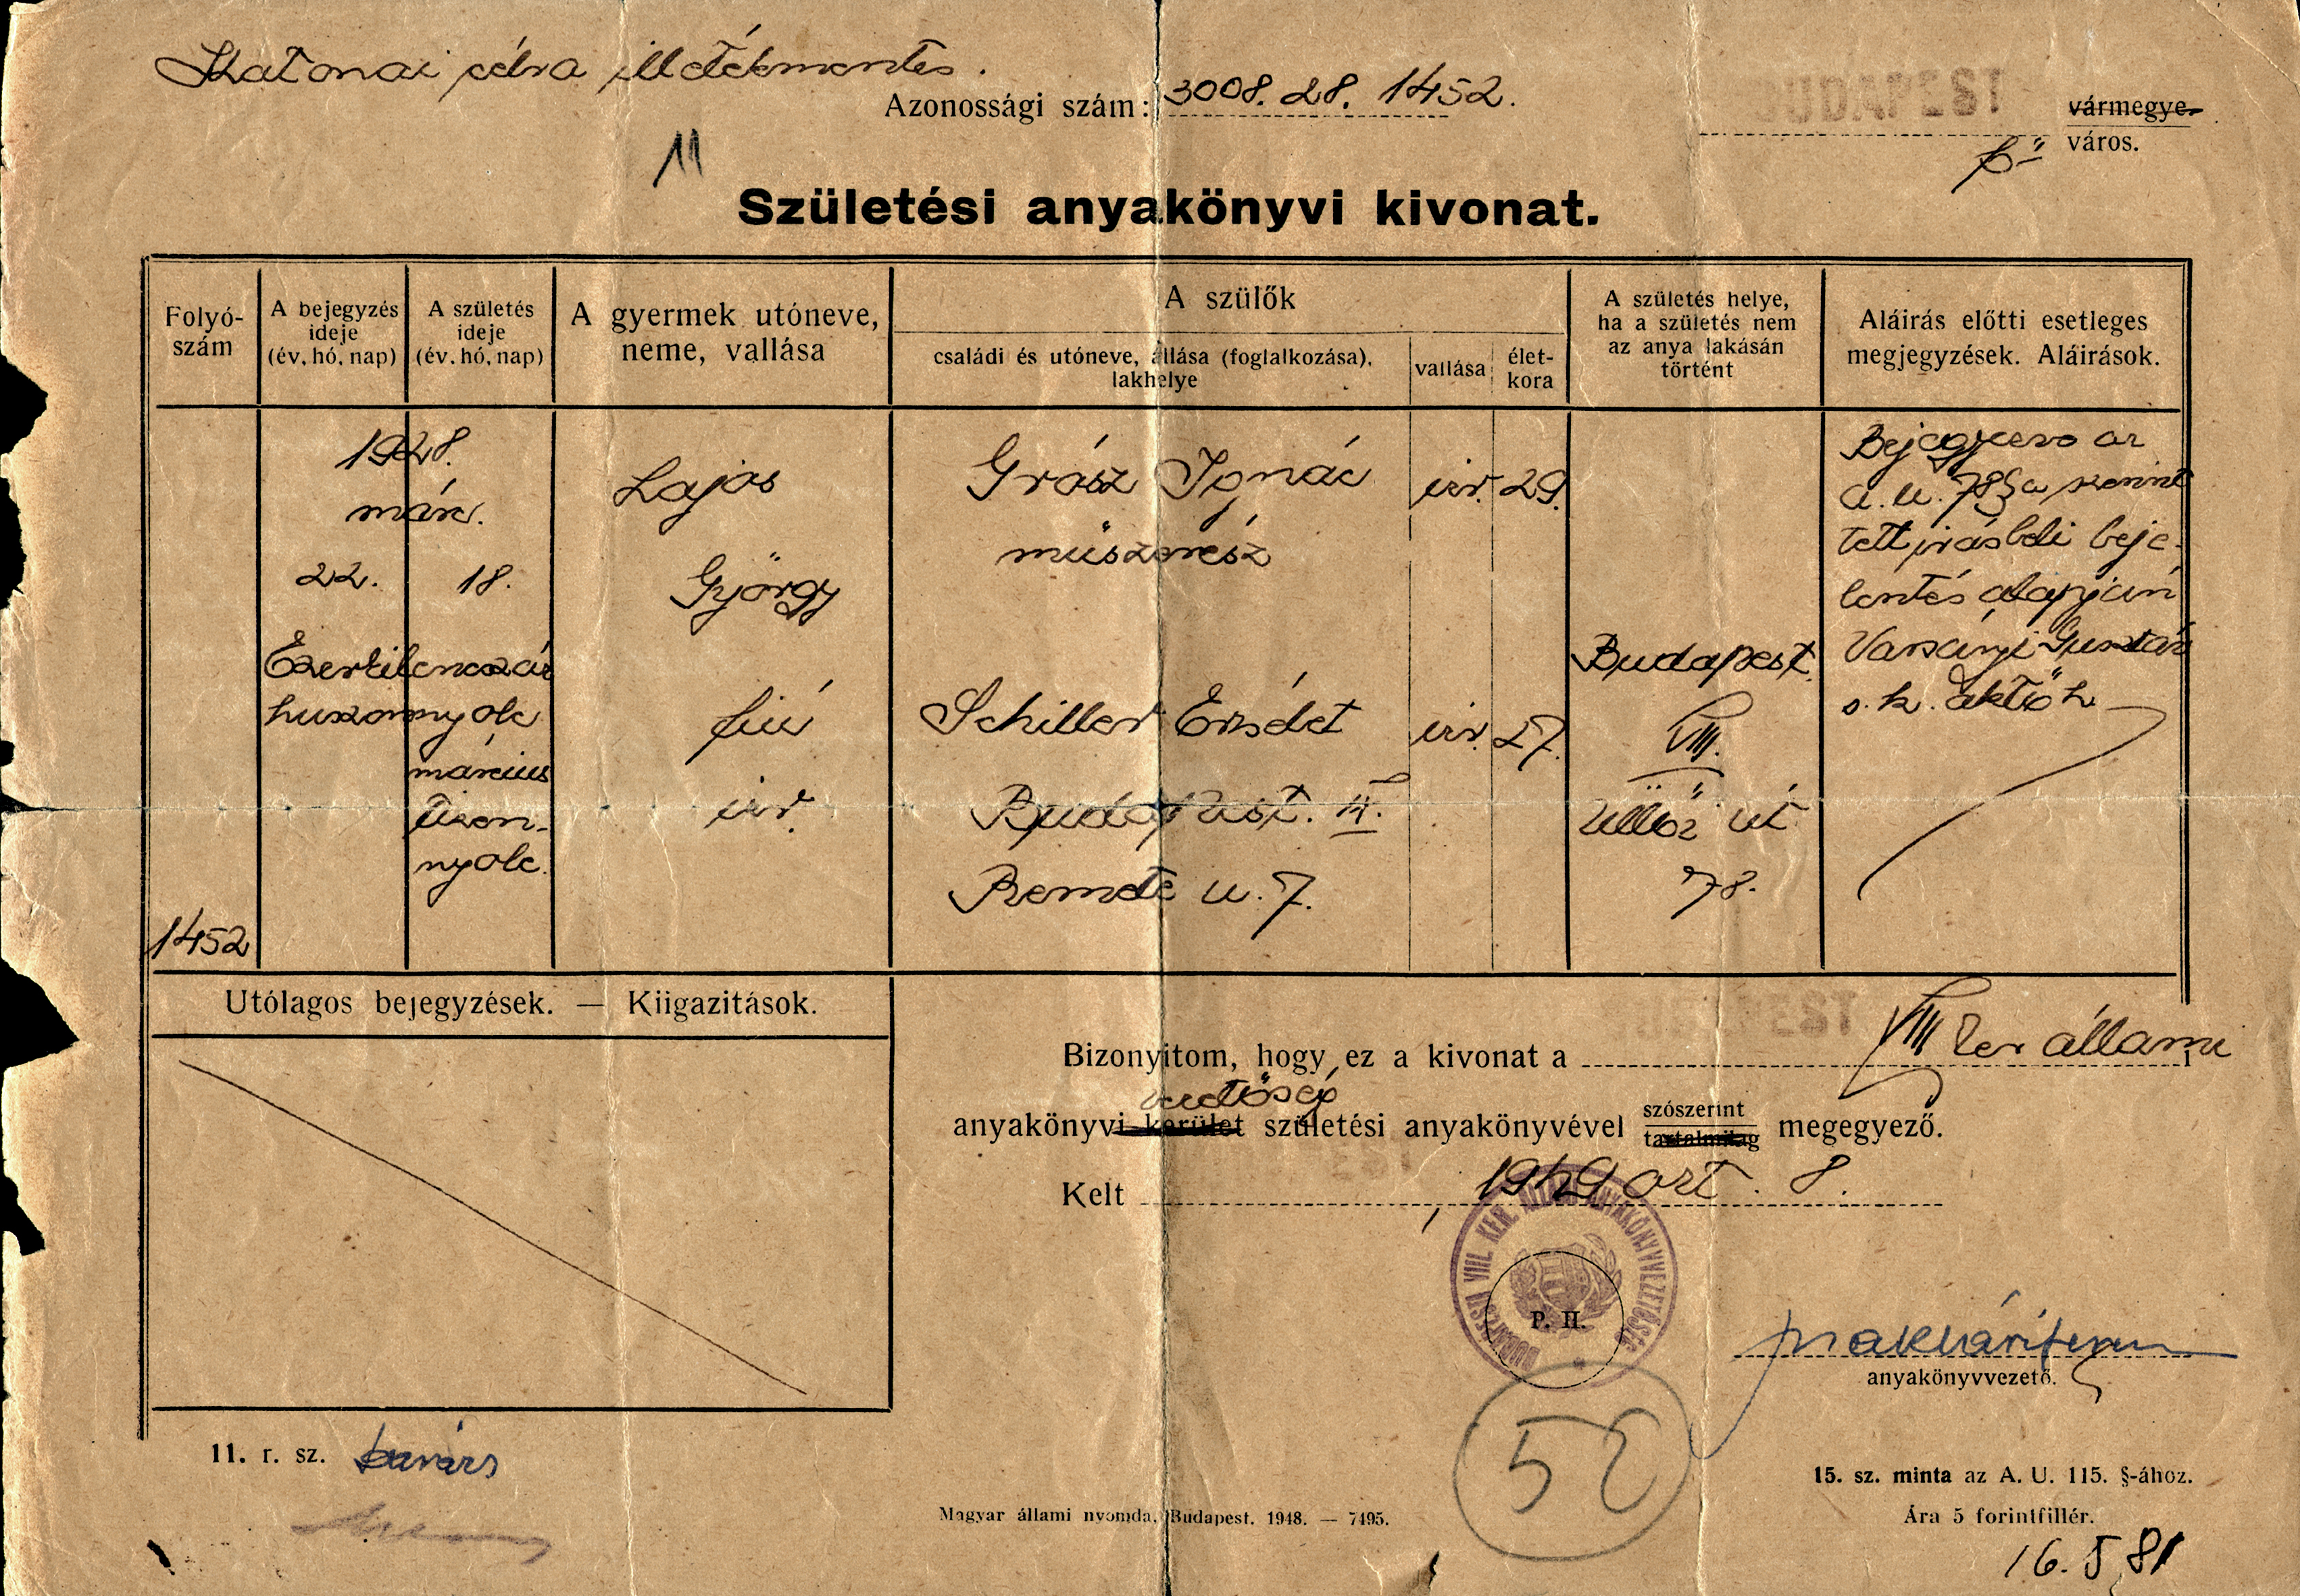 Katonai célra illetékmentes.
Azonossági szám: 3008. 28. 1452.
BUDAPEST
vármegye
fő város.
11
Születési anyakönyvi kivonat.
Folyó-
szám
A bejegyzés
ideje
(év, hó, nap)
A születés
ideje
(év, hó, nap)
A gyermek utóneve,
neme, vallása
A szülők
családi és utóneve, állása (foglalkozása),
lakhelye
vallása
élet-
kora
A születés helye,
ha a születés nem
az anya lakásán
történt
Aláírás előtti esetleges
megjegyzések. Aláírások.
1452
1928.
márc.
22. 18.
Ezerkilencszáz
huszonnyolc
március
tizen-
nyolc
Lajos
György
fiú
izr.
Grósz Ignác izr. 29.
műszerész
Schiller Erzsébet izr. 27.
Budapest. II.
Remete u. 7.
Budapest.
VIII.
Üllői út
78.
Bejegyezve az
A. U. 78§a szerint
tett írásbeli beje-
lentés alapján
Varsányi Gusztáv
s.k. aktőh
Utólagos bejegyzések. — Kiigazitások.
Bizonyitom, hogy ez a kivonat a VIII ker állami
vezetőség
anyakönyvi kerület születési anyakönyvével szószerint megegyező.
tartalmilag
Kelt , 1949 okt. 8.
BUDAPESTI VIII. KER. ÁLLAMI ANYAKÖNYVVEZETŐSÉG
P. H.
anyakönyvvezető.
52
11. r. sz.
15. sz. minta az A. U. 115. §-ához.
Magyar állami nyomda, Budapest. 1948. — 7495.
Ára 5 forintfillér.
16. 5 81